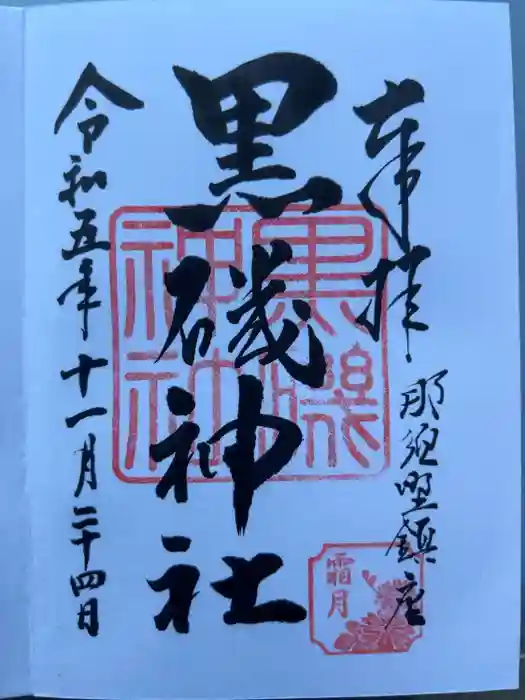 奉拝
那須野鎮座
黒磯神社
黒磯神社
霜月
令和五年十一月二十四日